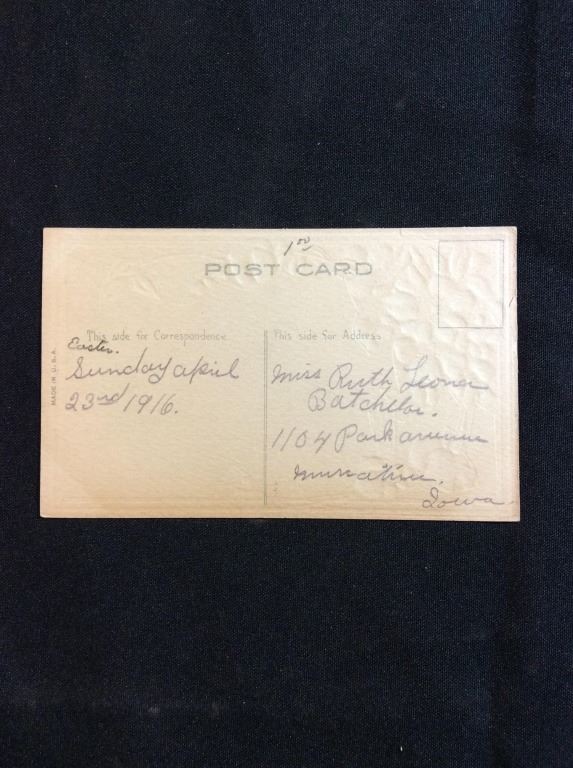 1 00
POST CARD
This side for Correspondence
This side for Address
MADE IN U.S.A.
Easter.
Sunday april
23rd 1916.
Miss Ruth Leona
Batchelor.
1104 Park avenue
muscatine.
Iowa